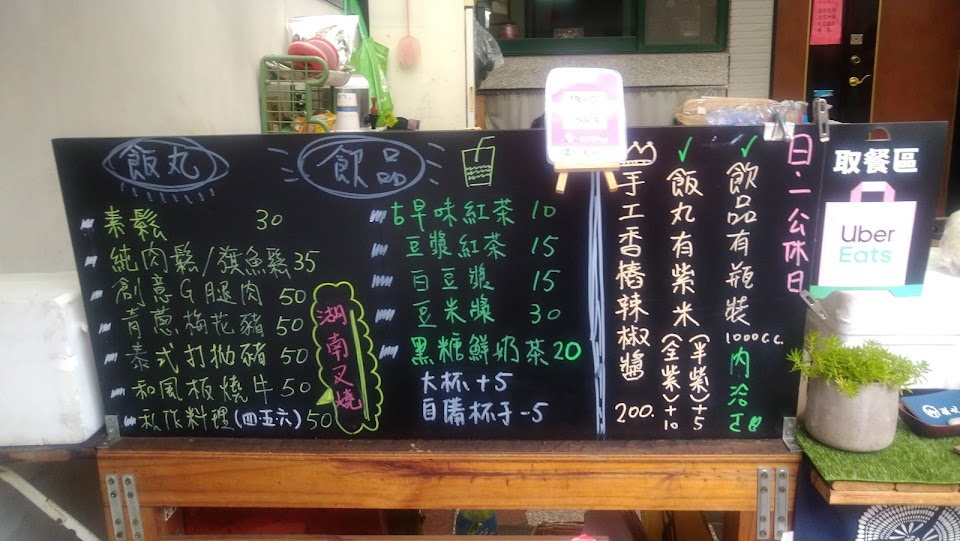 飯丸
素鬆 30
純肉鬆/旗魚鬆35
創意G腿肉 50
青蔥梅花豬 50
泰式打拋豬 50
和風板燒牛 50
私作料理(四五六)50
湖南叉燒
飲品
古早味紅茶 10
豆漿紅茶 15
白豆漿 15
豆米漿 30
黑糖鮮奶茶20
大杯+5
自備杯子-5
手工香椿辣椒醬 200.
飯丸有紫米(半紫)+5
(全紫)+10
飲品有瓶裝1000c.c.內洽
日.一公休日
取餐區
Uber
Eats